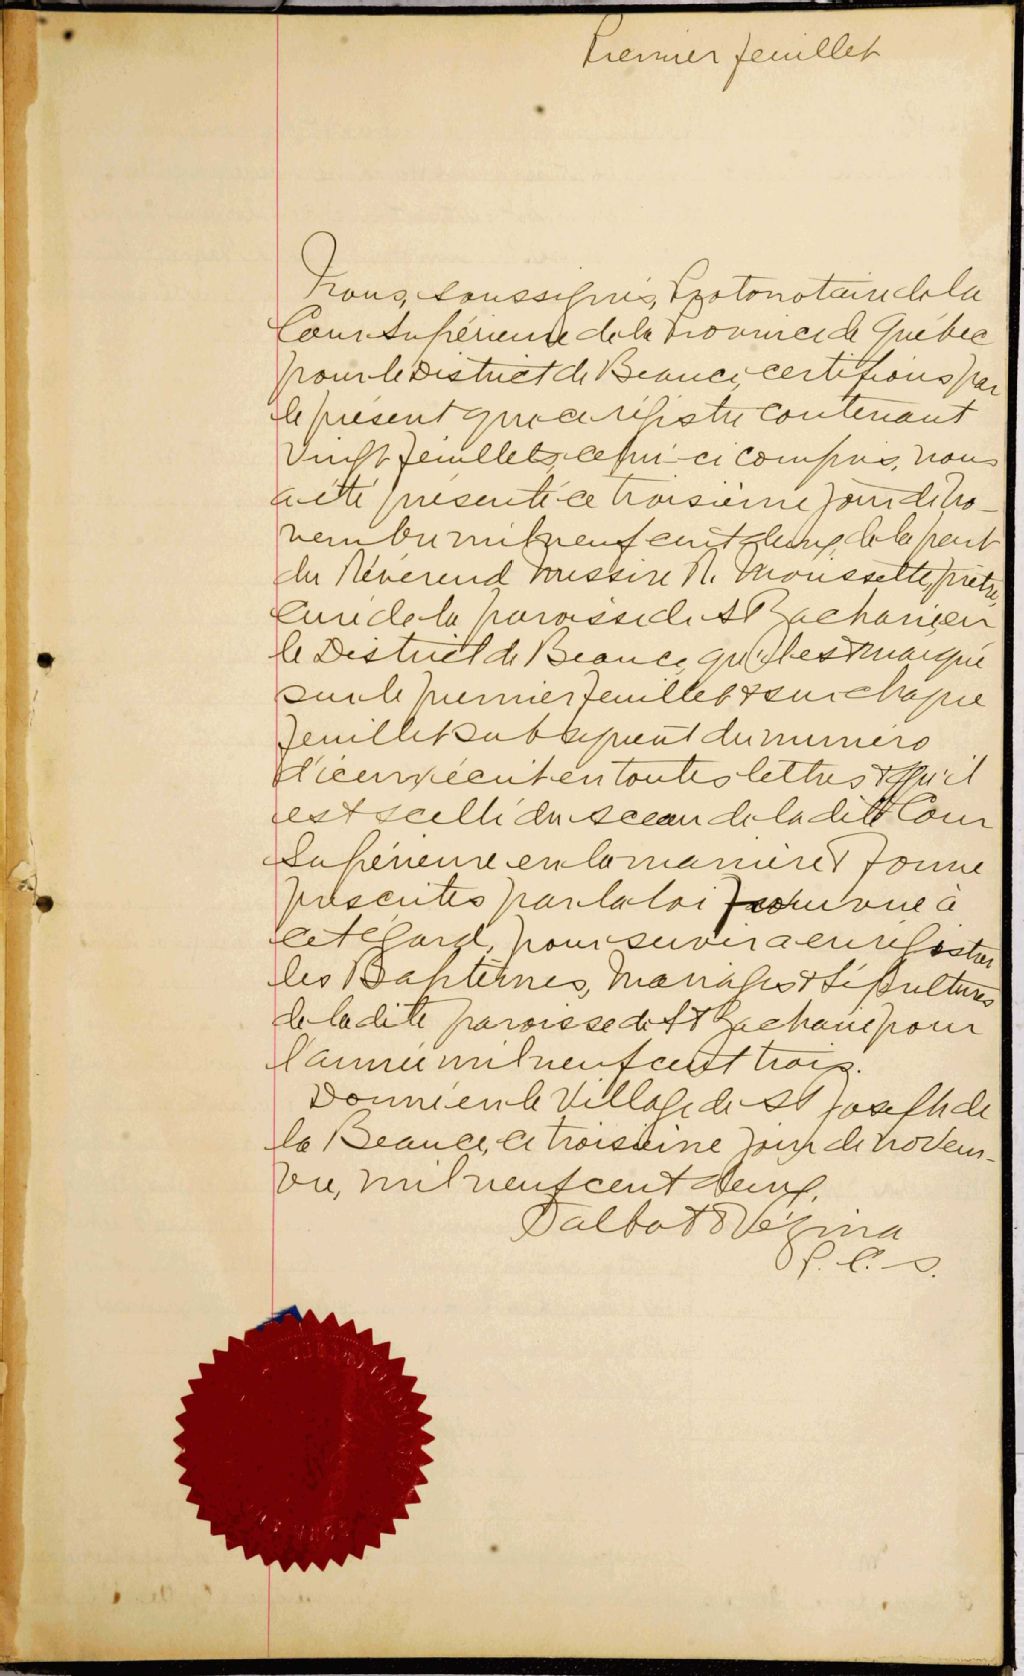 Premier feuillet
Nous, soussignés, Protonotaire de la
Cour Supérieure de la Province de Québec
pour le District de Beauce, certifions par
le présent que ce régistre contenant
vingt feuillets, celui-ci compris, nous
a été présenté ce troisième jour de No-
vembre mil neuf cent deux, de la part
du Révérend Messire N. Mousette, prêtre,
curé de la paroisse de St Zacharie, en
le District de Beauce, qu'il est marqué
sur le premier feuillet & sur chaque
feuillet subséquent du numéro
d'iceux, écrit en toutes lettres & qu'il
est scellé du sceau de la dite Cour
Supérieure en la manière & forme
prescrites par la loi pourvue à
cet égard, pour servir a enrégistrer
les Baptêmes, Mariages & Sépultures
de la dite paroisse de St Zacharie pour
l'année mil neuf cent trois.
Donné en le Village de St Joseph de
la Beauce, ce troisième jour de novem-
bre, mil neuf cent deux.
Talbot & Vézina
P. C. S.